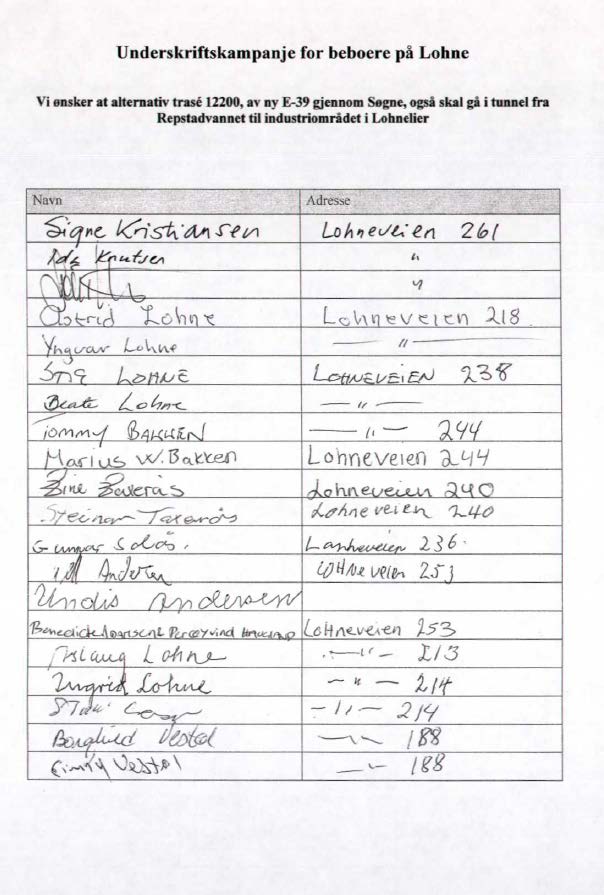 Underskriftskampanje for beboere på Lohne
Vi ønsker at alternativ trasé 12200, av ny E-39 gjennom Søgne, også skal gå i tunnel fra
Repstadvannet til industriområdet i Lohnelier
Navn Adresse
Signe Kristiansen Lohneveien 261
Knutsen "
"
Astrid Lohne Lohneveien 218
Yngvar Lohne — " —
Stig LOHNE LOHNEVEIEN 238
Beate Lohne — " —
Tommy BAKKEN — " — 244
Marius W. Bakken Lohneveien 244
Lohneveien 240
Steinar Lohneveien 240
Gunnar Solås. 236.
Andersen LOHNeveien 253
Undis Andersen
LoHneveien 253
Aslaug Lohne — " — 213
Ingrid Lohne — " — 214
— " — 214
Vestøl — " — 188
Vestøl — " — 188